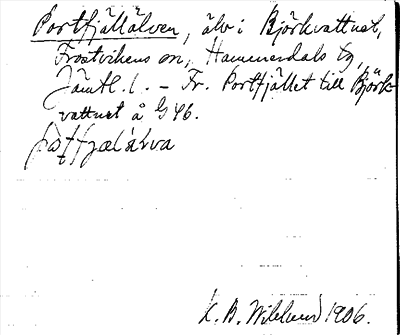 Portfjällälven, älv i Björkvattnet,
Frostvikens sn, Hammerdals tg,
Jämtl. l. – Fr. Portfjället till Björk-
vattnet å G 46.
K. B. Wiklund 1906.